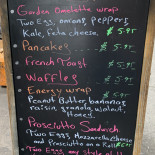 Garden Omelette wrap
Two Eggs, onions, peppers,
Kale, feta cheese, $ 5.95
Pancakes $ 5.95
French Toast
Waffles
Energy wrap $ 5.95
Peanut Butter, bananas
raisin, granola, walnut,
honey.
Prosciutto Sandwich
Two Eggs, Mozzarella cheese
and Prosciutto on a Roll
Two Eggs any style